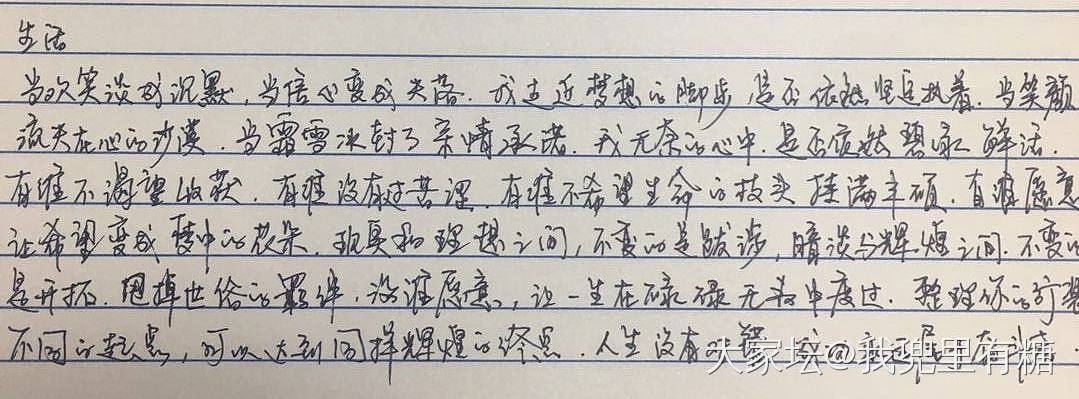 生活
当欢笑淡成沉默，当信心变成失落．我走近梦想的脚步，是否依旧坚定执着．当笑颜
流失在心的沙漠．当霜雪冰封了亲情承诺．我无奈的心中．是否依然碧绿鲜活．
有谁不渴望收获．有谁没有过苦涩．有谁不希望生命的枝头挂满丰硕．有谁愿意
让希望变成梦中的花朵．现实和理想之间，不变的是跋涉，暗淡与辉煌之间．不变的
是开拓．甩掉世俗的羁绊．没谁愿意，让一生在碌碌无为中度过．整理你的行装
不同的起点，可以达到同样辉煌的终点．人生没有
大家坛@我兜里有糖